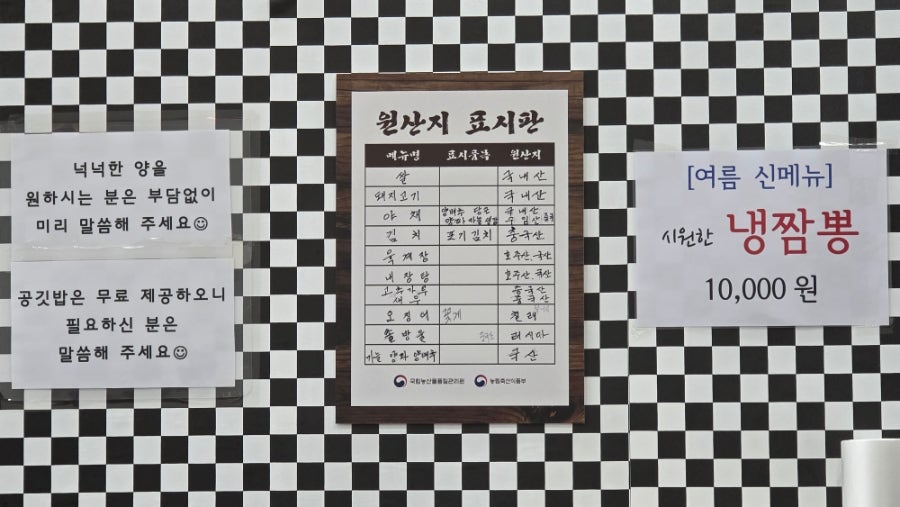 넉넉한 양을
원하시는 분은 부담없이
미리 말씀해 주세요☺
공깃밥은 무료 제공하오니
필요하신 분은
말씀해 주세요☺
원산지 표시판
메뉴명 표시품목 원산지
쌀 국내산
돼지고기 국내산
야채 양배추 당근 국내산
양파 마늘 수입산
김치 포기김치 중국산
육계장 호주산
내장탕 호주산
고추가루 중국산
새우 중국산
오징어 꽃게 칠레
솔방울 러시아
마늘 양파 양배추 국산
국립농산물품질관리원 농림축산식품부
[여름 신메뉴]
시원한 냉짬뽕
10,000원